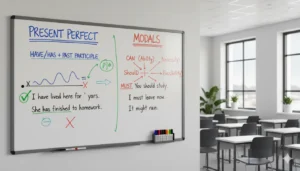 PRESENT PERFECT
HAVE/HAS + PAST PARTICIPLE
I have lived here for yars.
She has finished to homework.
MODALS
CAN (Ability)
Should
MUST You should study
I must leave now.
It might rain.